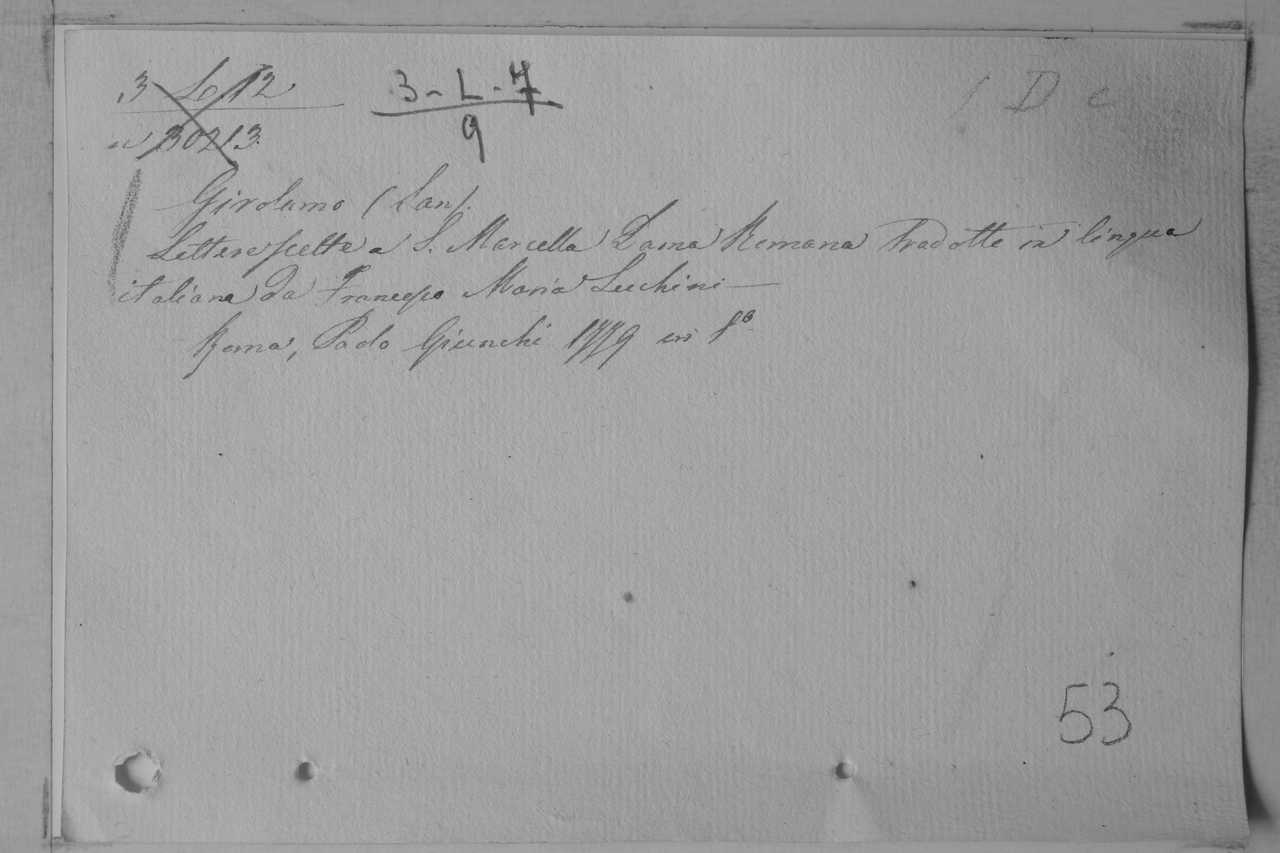 3 L 12
3-L-7
9
n 30213
D c
Girolamo (San).
Lettere scelte a S. Marcella Dama Romana tradotte in lingua
italiana da Francesco Maria Lucchini
Roma, Paolo Giunchi 1779 in 8º
53